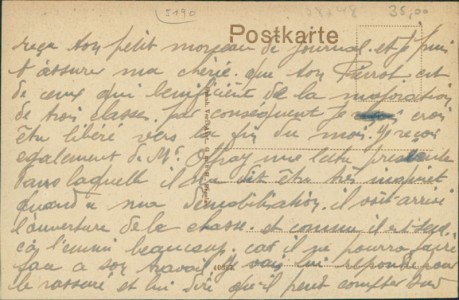 I190
35,00
Postkarte
reçu ton petit morceau de journal. et je puis
t'assure ma chérie. que ton Pierrot. est
de ceux qui bénéficient de la majoration
de trois classe. par conséquent je crois
être libéré vers la fin du mois. J'reçois
également de Mr. une lettre
dans laquelle il me dit être très inquiet
quand a ma démobilisation. il voit arrivé
l'ouverture de la chasse. et comme il est seul
ça l'ennui beaucoup. car il ne pourra faire
face a son travail Je vais lui répondre pour
le rassuré et lui dire qu'il peut compter sur